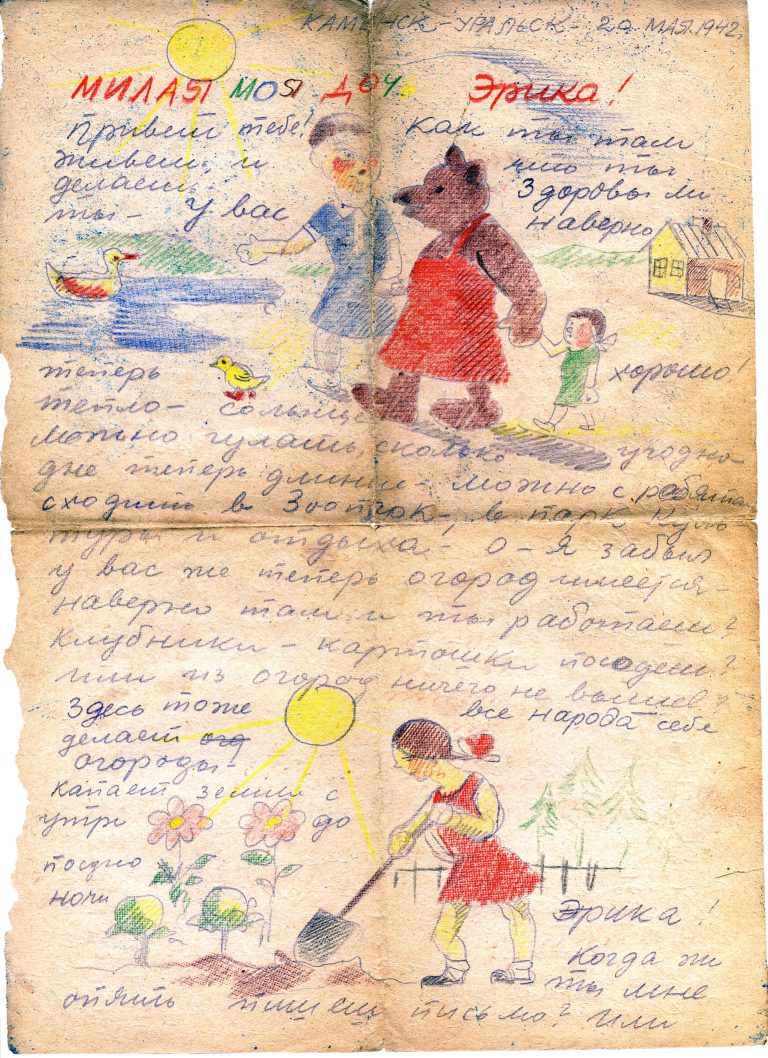 КАМЕНСК-УРАЛЬСК- 20 МАЯ 1942,
МИЛАЯ МОЯ ДОЧЬ Эрика!
Привет тебе! Как ты там
живешь, и что ты
делаешь Здоровы ли
ты- у вас наверно
теперь хорошо!
тепло- солнце
можно гулять, сколько угодно-
дне теперь длинне- можно с ребята
сходить в Зоопарк, в парк куль
туры и отдыха- О-Я забыл
у вас же теперь огород имеется-
наверно там и ты работаеш?
клубники- картошки посодеш?
или из огород ничего не вышев?
Здесь тоже все народа себе
делает ого
огороды-
капает земли с
утри до
посдно
ночи
Эрика!
Когда же
ты мне
опять пишеш письмо? Или